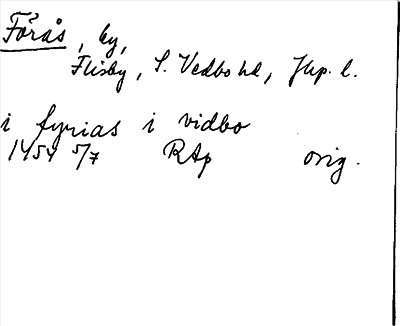 Förås, by,
Flisby, S. Vedbo hd, Jkp. l.
i fyrias i vidbo
1454 5/7 RAp orig.